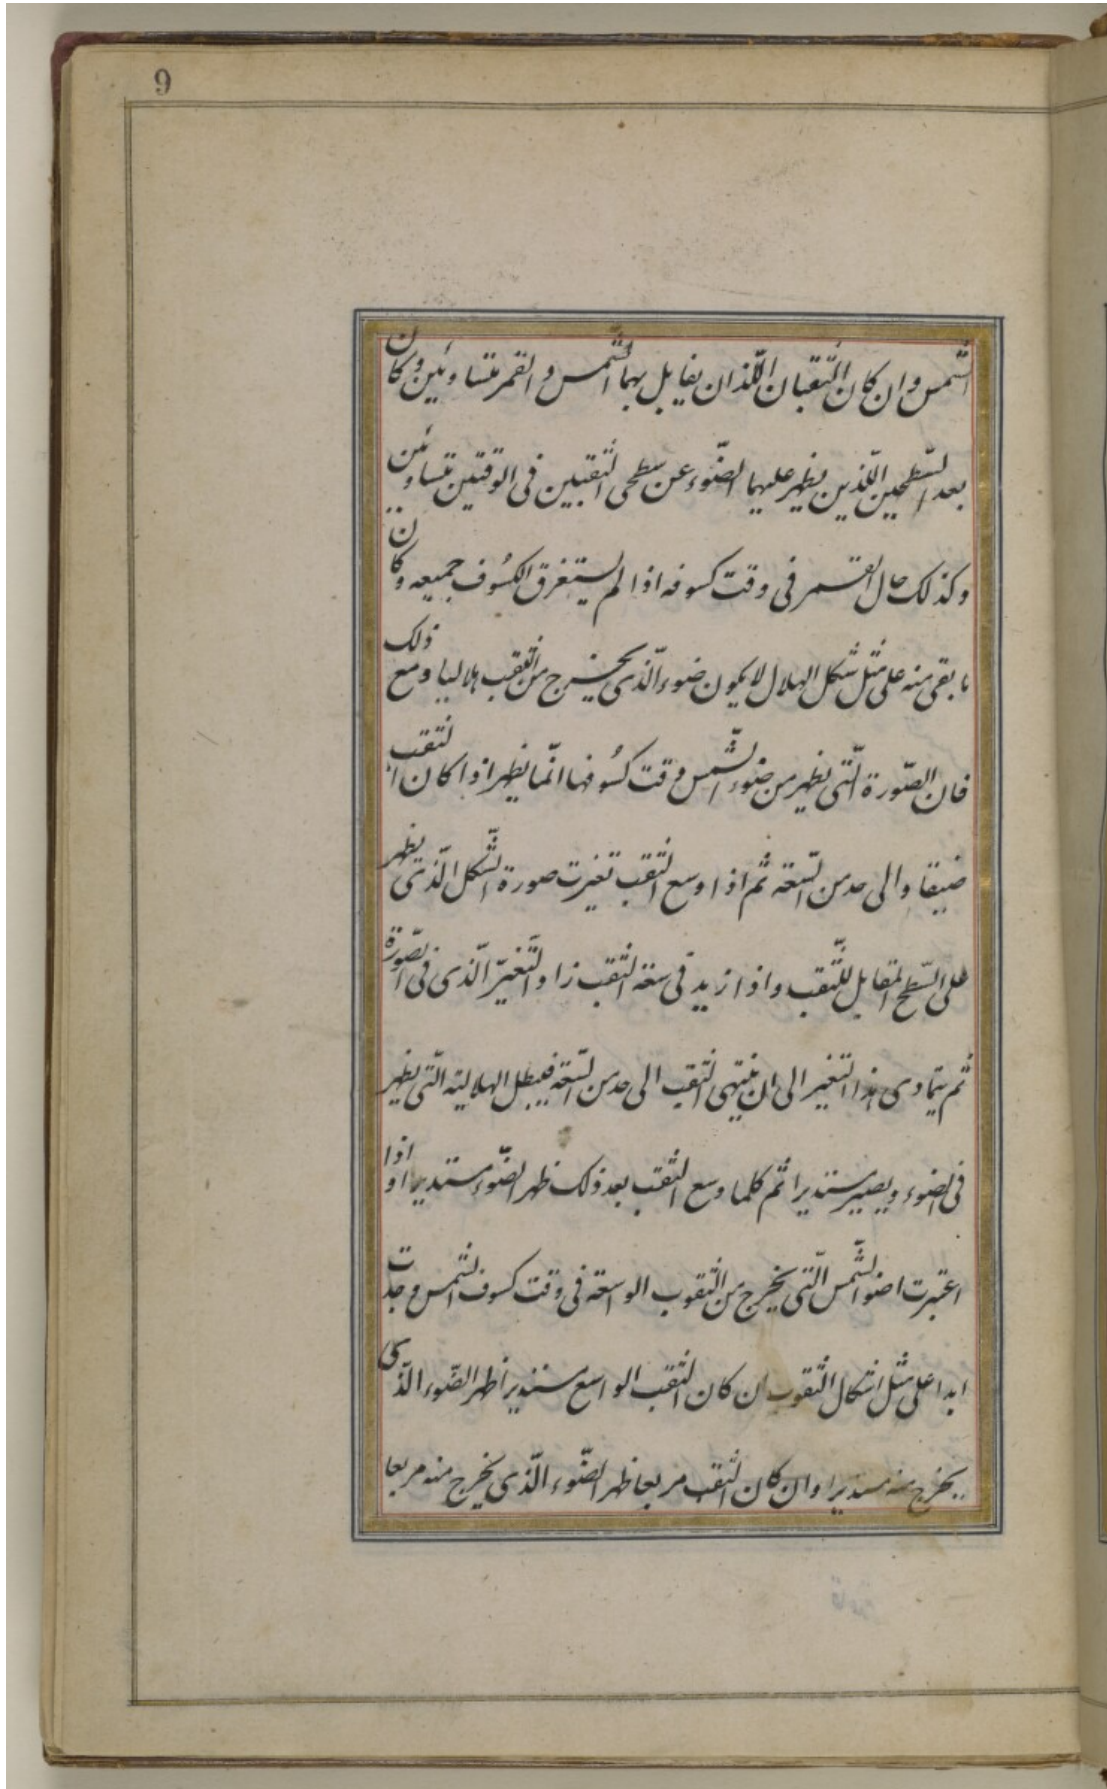 9
الشمس وان كان الثقبان اللّذان يقابل بهما الشّمس و القمر متساويين و كان
بعد السّطحين اللّذين يظهر عليهما الضّوء عن سطحى الثقبين فى الوقتين متساويين
وكذلك حال القمر فى وقت كسوفه اذا لم يستغرق الكسُوف جميعه وكان
ما بقى منه على مثل شكل الهلال لا يكون ضوء الّذى يخرج من الثقب هلاليا ومع ذلك
فان الصّورة الّتى يظهر من ضوء الشّمس وقت كسُوفها انّما يظهر اذا كان الثقب
ضيقا والى حد من السّعة ثم اذا وسع الثقب تغيرت صورة الشّكل الّذى يظهر
على السّطح المقابل للثّقب واذا زيد فى سعة الثقب زاد التّغيّر الّذى فى الصّورة
ثم يتمادى هذا التغير الى ان ينتهى الثقب الى حد من السّعة فيبطل الهلالية الّتى يظهر
فى الضوء ويصير مستديرا ثم كلما وسع الثقب بعد ذلك ظهر الضّوء مستديرا و اذا
اعتبرت اضوا الشّمس الّتى يخرج من الثقوب الواسعة فى وقت كسوف الشمس وجدت
ابدا على مثل اشكال الثقوب ان كان الثقب الواسع مستديرا ظهر الضّوء الّذى
يخرج منه مستديرا وان كان الثقب مربعا ظهر الضّوء الّذى يخرج منه مربعا